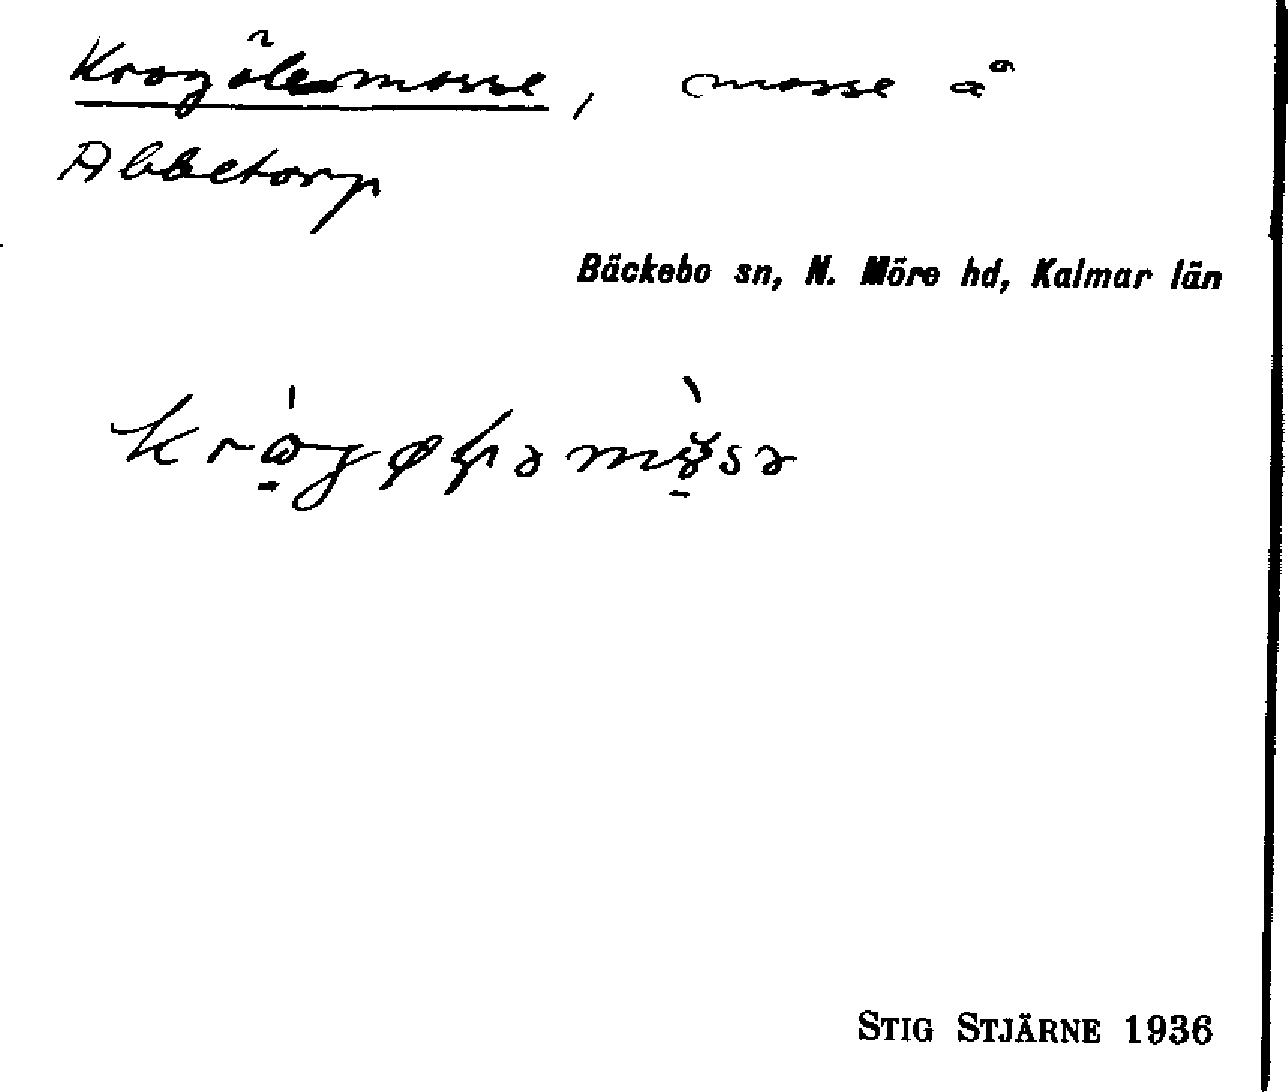 Krogölemosse, mosse å
Abbetorp
Bäckebo sn, N. Möre hd, Kalmar län
STIG STJÄRNE 1936